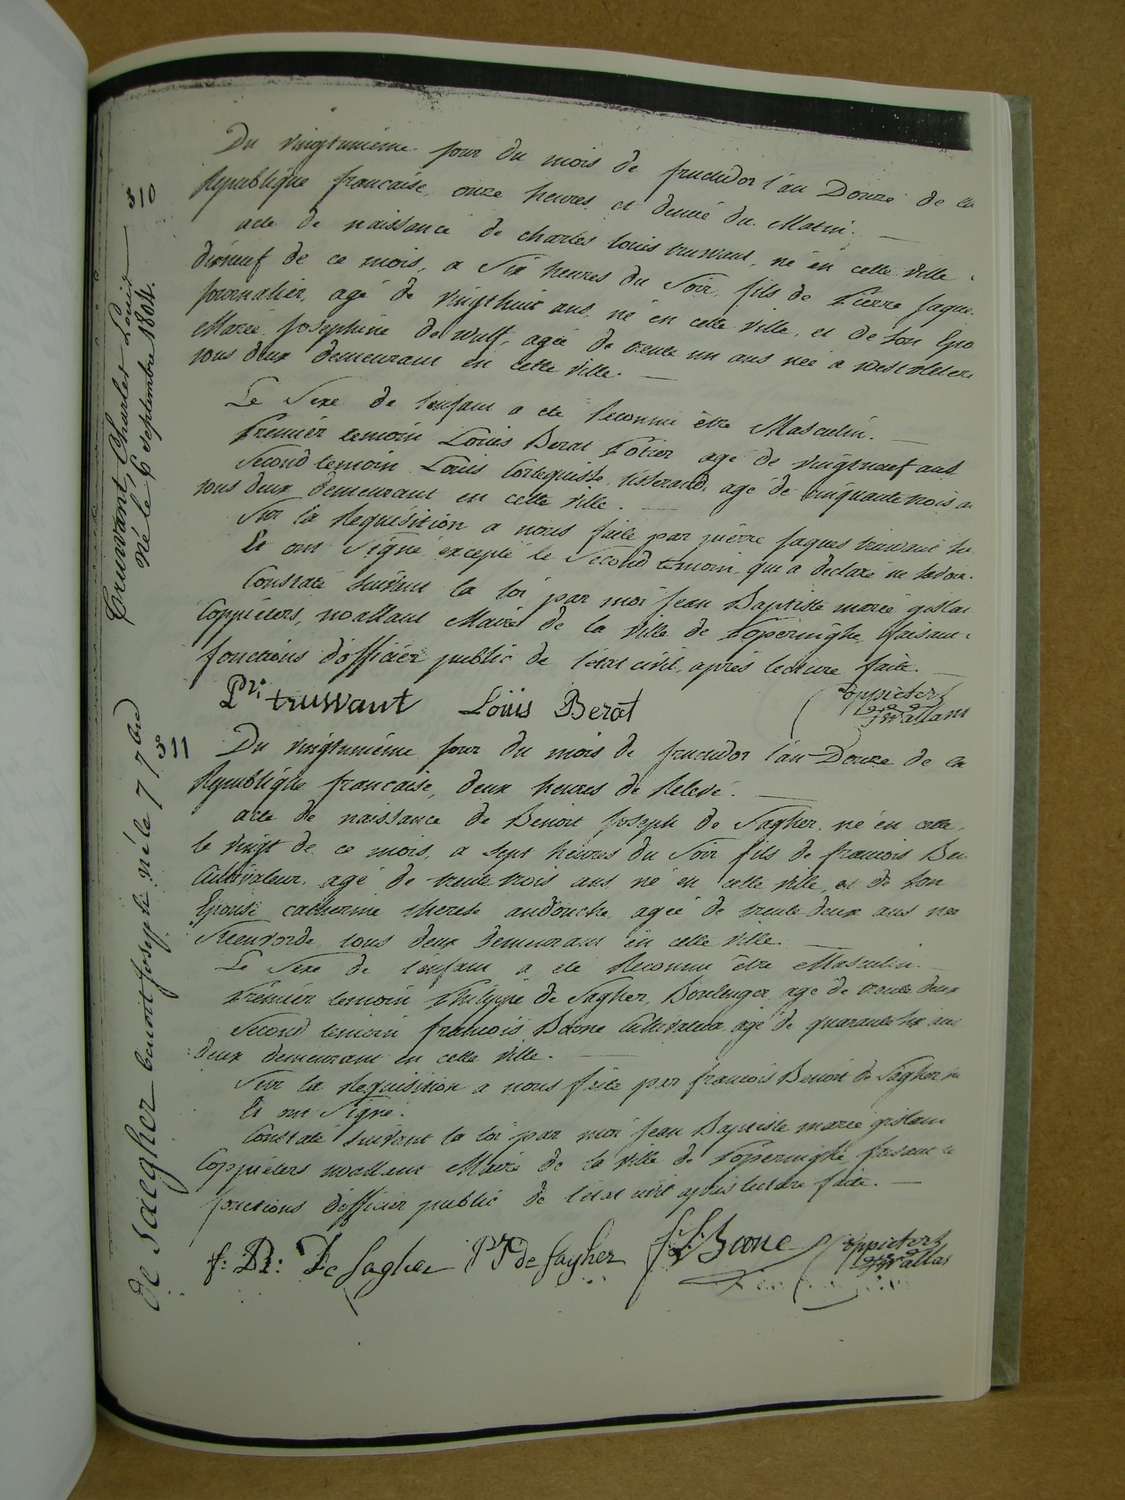 310
Truwant, Charles Louis
né le 6 septembre 1804.
Du vingtunième jour du mois de fructidor l'an Douze de la
Republique française, onze heures et demie du Matin.
acte de naissance de charles Louis truwant, né en cette ville
dixneuf de ce mois, a Six heures du Soir, fils de Pierre Jaque
Journalier, agé de vingthuit ans, né en cette ville, et de son Epo
Marie Josephine de wulf, agée de trente un ans née a westvleter
tous deux demeurant en cette ville.
Le Sexe de l'enfant a eté Reconnu être Masculin.
Premier temoin Louis Berat Potier agé de vingtneuf ans
Second temoin Louis Cortequisse, tisserand, agé de cinquante trois a
tous deux demeurant en cette ville.
Sur la Requisition a nous faite par pierre jaques truwant
Et ont Signé, excepté le Second temoin qui a declaré ne Savoir.
Constaté Suivant la loi par moi Jean Baptiste marie gislai
Coppieters, wallant Maire de la ville de Poperinghe, faisant
fonctions d'officier public de l'état civil, après lecture faite.
Pre: truwant Loüis Berat Coppieters
Wallant
311
de Saegher benoit Joseph né le 7 7bre
Du vingtunième jour du mois de fructidor l'an Douze de la
Republique française, deux heures de Relevé.
acte de naissance de Benoit Joseph de Sagher, né en cette
le vingt de ce mois, a sept heures du Soir fils de francois Ben
Cultivateur, agé de trente trois ans né en cette ville, et de Son
Epouse catherine therese audouche, agée de trente deux ans née
Steenvorde, tous deux demeurant en cette ville.
Le Sexe de l'enfant a eté Reconnu être Masculin.
Premier temoin Philippe de Sagher, Boulenger, agé de trente deux
Second temoin francois Boone Cultivateur, agé de quarante six ans
deux demeurant en cette ville.
Sur la Requisition a nous faite par francois Benoit de Sagher
Et ont Signé.
Constaté Suivant la loi par moi Jean Baptiste marie gislain
Coppieters wallant Maire de la ville de Poperinghe faisant
fonctions d'officier public de l'état civil après lecture faite.
f: B: De Sagher P J de Sagher Boone Coppieters
Wallan